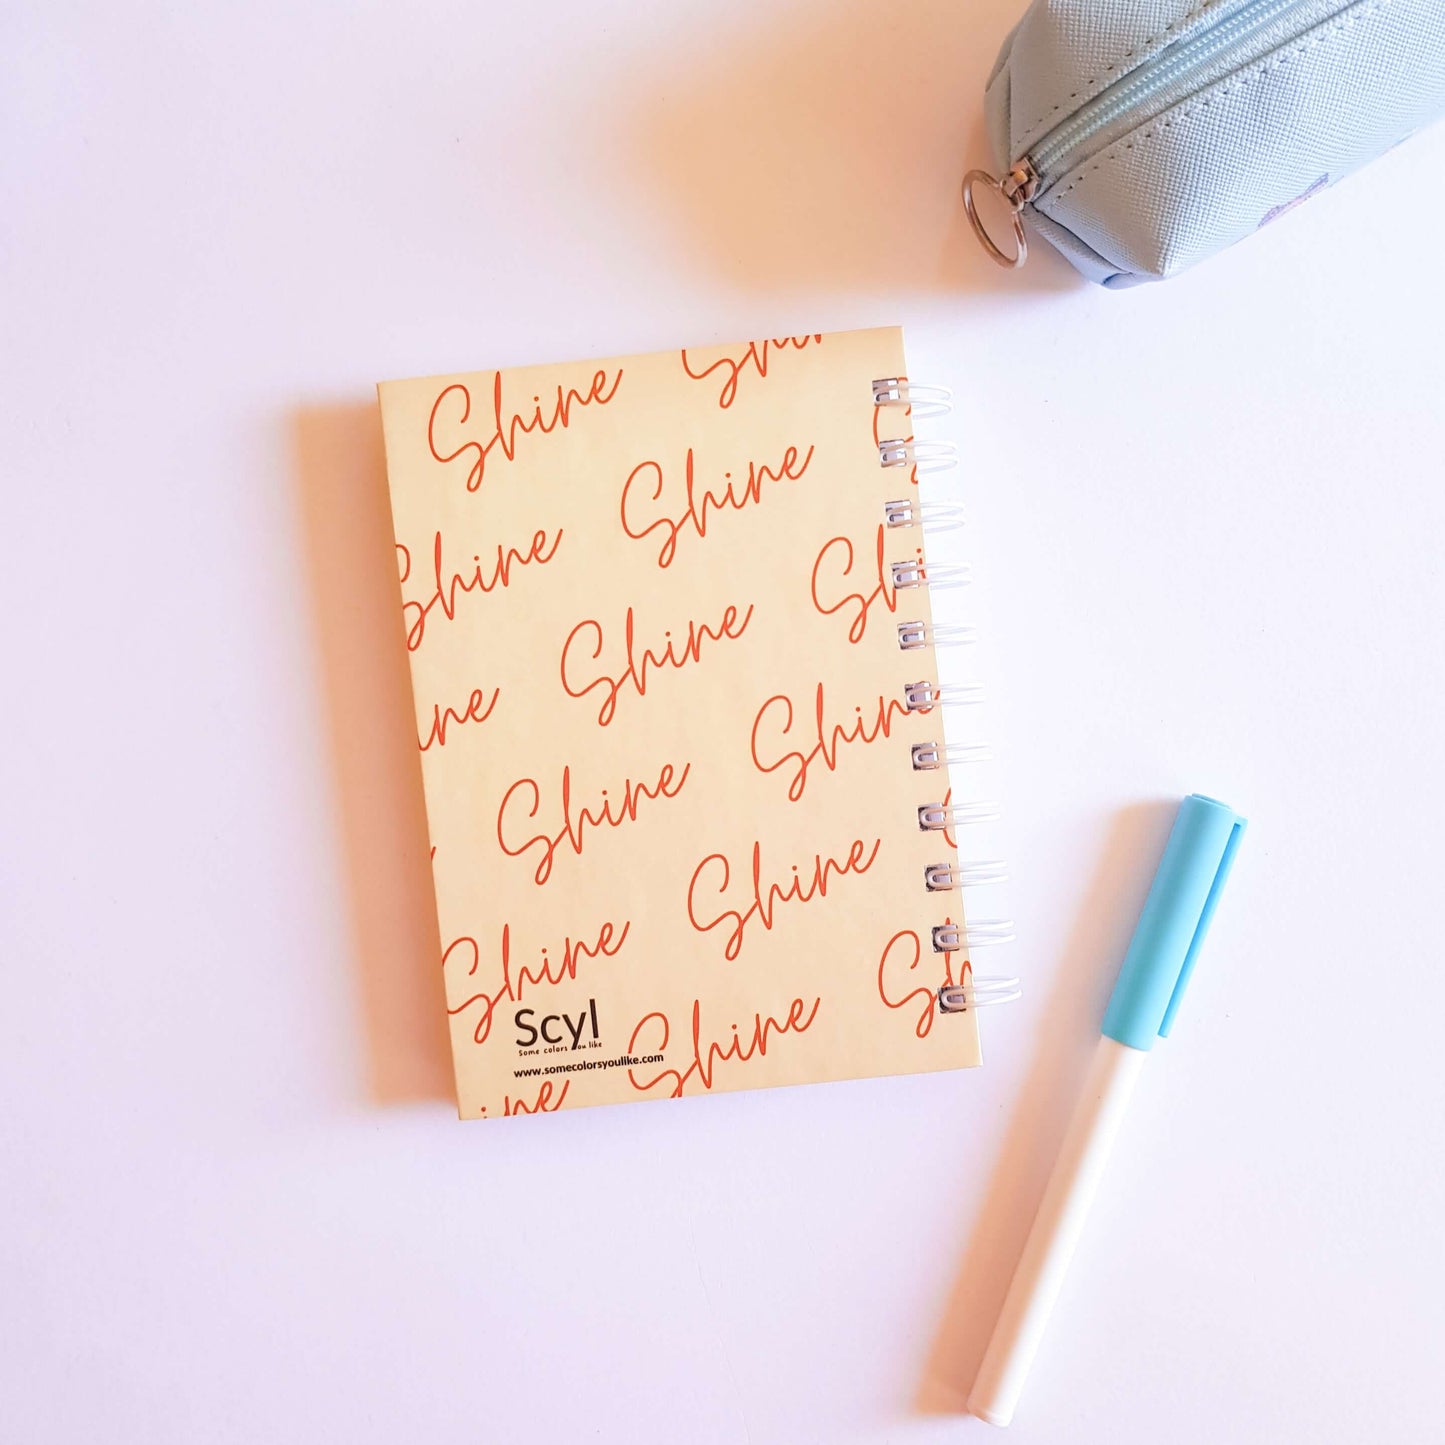 Shine Shine
Shine Shine
Shine Shine
Shine Shine
Shine Shine
Shine Shine
Scyl
Some colors you like
www.somecolorsyoulike.com